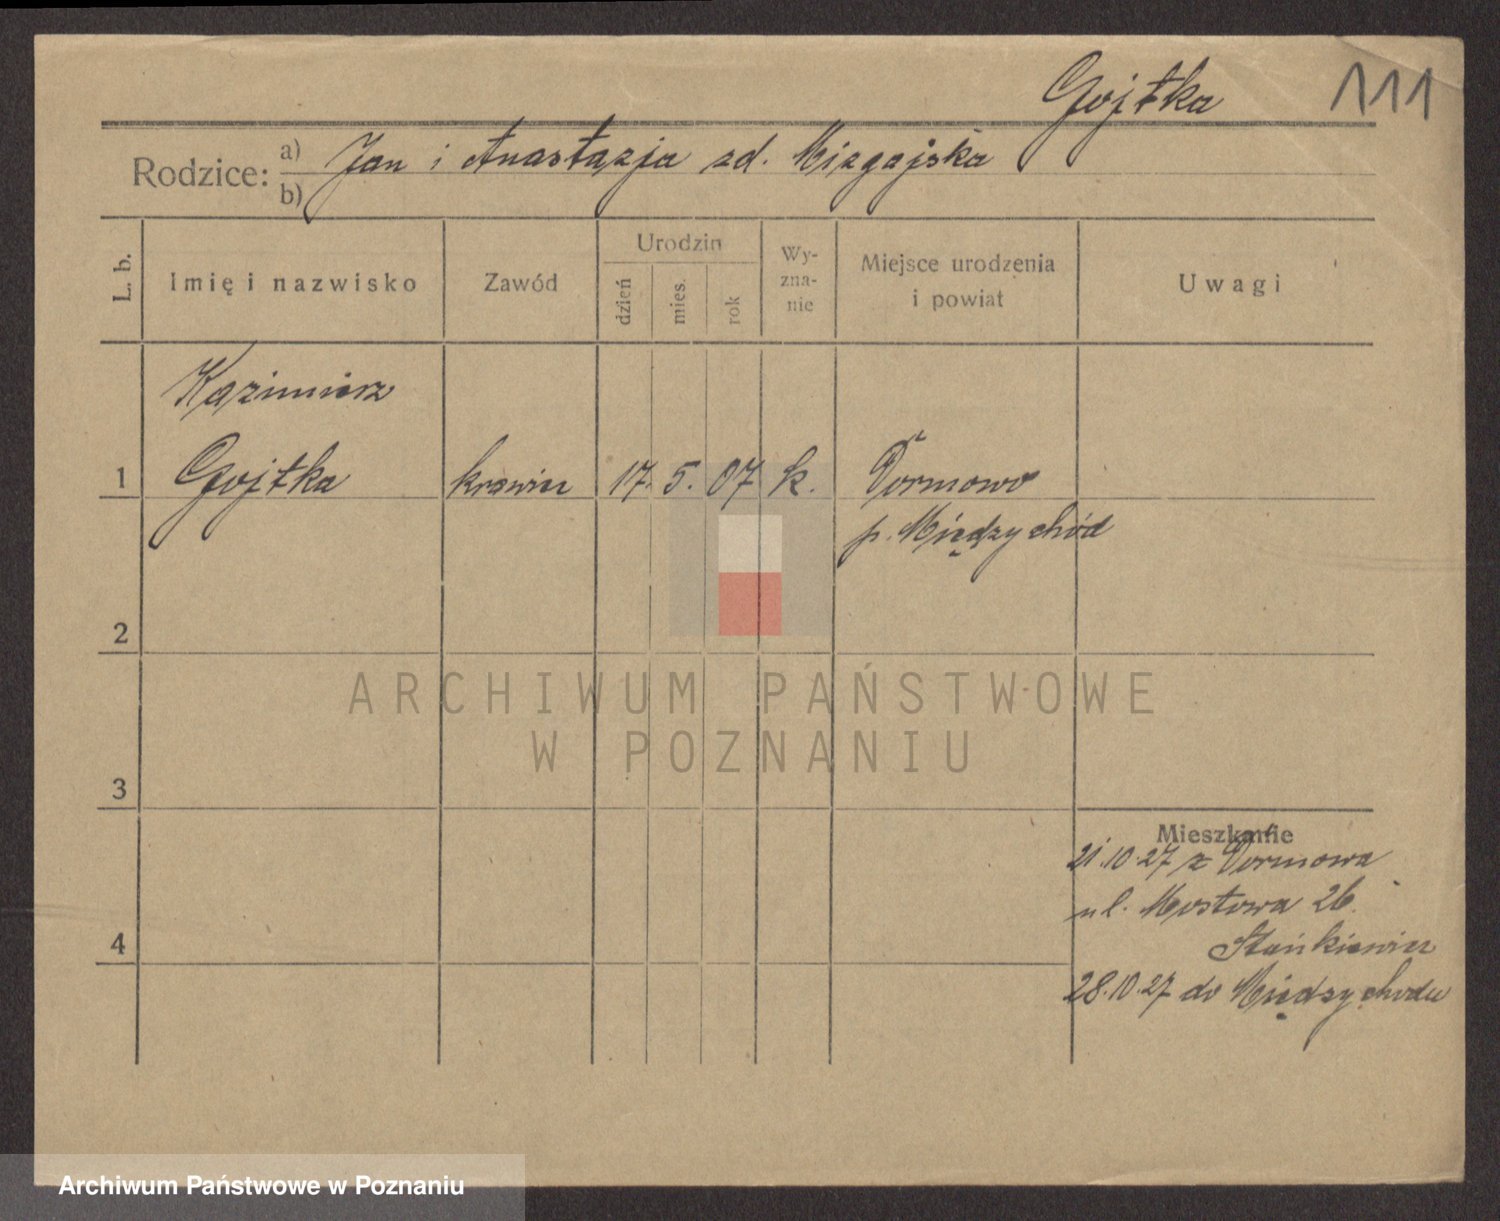 Gojtka 111
Rodzice: a) b) Jan i Anastazja zd. Mizgajska
L. b. Imię i nazwisko Zawód Urodzin dzień mies. rok Wy-zna-nie Miejsce urodzenia i powiat Uwagi
Kazimierz
1 Gojtka krawiec 17. 5. 07 k. Dormowo
p. Międzychód
2
ARCHIWUM PAŃSTWOWE
W POZNANIU
3
Mieszkanie
21.10.27 z Dormowa
4 ul. Mostowa 26
Stańkiewicz
28.10.27 do Międzychodu
Archiwum Państwowe w Poznaniu